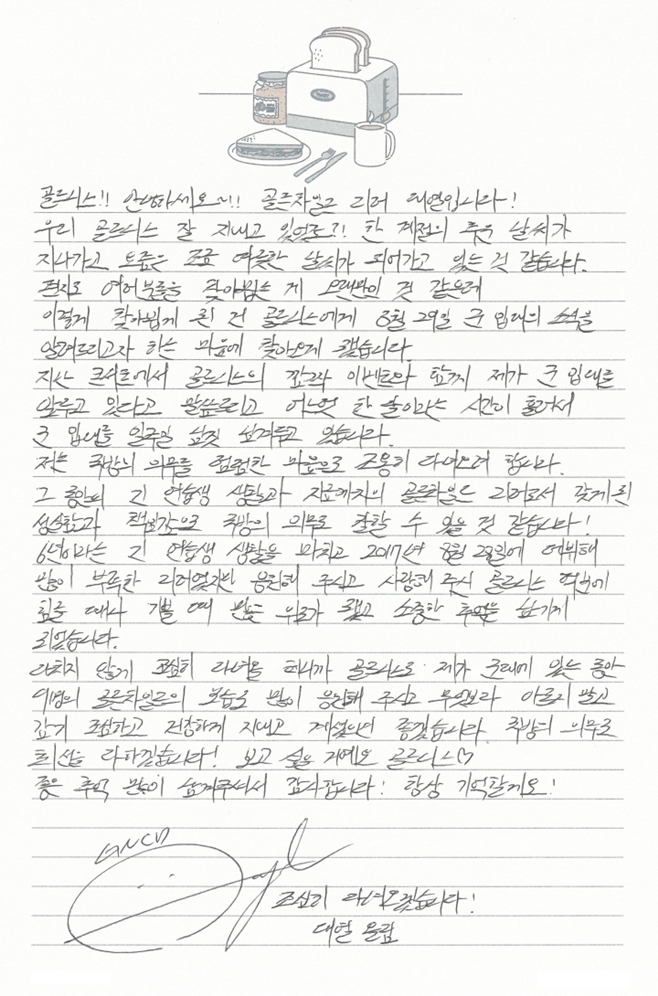 골드니스!! 안녕하세요~!! 골든차일드 리더 대열입니다!
우리 골드니스 잘 지내고 있었죠?! 한 계절의 추운 날씨가
지나가고 요즘은 조금 따뜻한 날씨가 되어가고 있는 것 같습니다.
편지로 여러분들을 찾아뵙는 게 오랜만인 것 같은데
이렇게 찾아뵙게 된 건 골드니스에게 3월 29일 군 입대의 소식을
알려드리고자 하는 마음에 찾아오게 됐습니다.
지난 콘서트에서 골드니스의 깜짝 이벤트와 함께 제가 군 입대를
앞두고 있다고 말씀드리고 어느덧 한 달이라는 시간이 흘러서
군 입대를 일주일 남짓 남겨두고 있습니다.
저는 국방의 의무를 덤덤한 마음으로 조용히 다녀오려 합니다.
그 동안의 긴 연습생 생활과 지금까지의 골든차일드 리더로서 갖게 된
성실함과 책임감으로 국방의 의무도 잘할 수 있을 것 같습니다!
6년이라는 긴 연습생 생활을 마치고 2017년 8월 28일에 데뷔해
많이 부족한 리더였지만 응원해 주시고 사랑해 주신 골드니스 덕분에
힘들 때나 기쁠 때 많은 위로가 됐고 소중한 추억을 남기게
되었습니다.
다치지 않게 조심히 다녀올 테니까 골드니스도 제가 군대에 있는 동안
9명의 골든차일드의 모습도 많이 응원해 주시고 무엇보다 아프지 말고
감기 조심하고 건강하게 지내고 계셨으면 좋겠습니다. 국방의 의무도
최선을 다하겠습니다! 보고 싶을 거예요 골드니스♡
좋은 추억 많이 남겨주셔서 감사합니다! 항상 기억할게요!
GNCD
조심히 다녀오겠습니다!
대열 올림